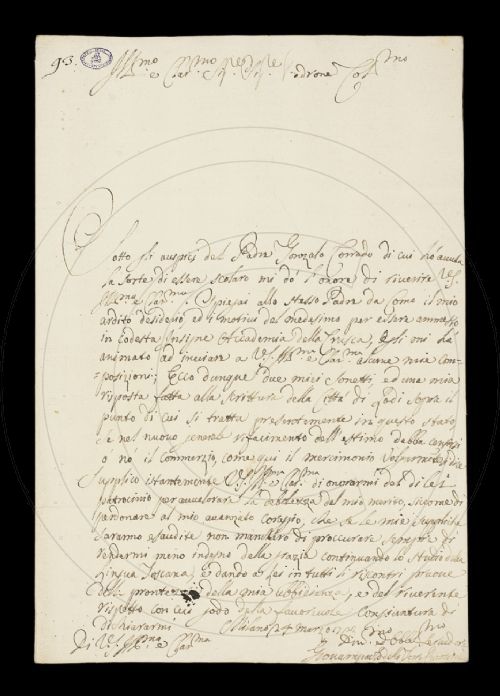 93.
Ill.mo e Chiar.mo Sig.re Sig.re Padrone Col.mo
Sotto gli auspicj del Padre Gonzalo Corrado di cui hò avuta
la sorte di essere scolaro mi dò l'onore di riverire V.S.
Ill.ma e Chiar.ma. Espiegai allo stesso Padre da come il mio
ardito desiderio, ed i motivi dal medesimo per essere ammesso
in codesta Insigne Accademia della Crusca, Egli mi hà
animato ad inviare a V.S. Ill.ma e Chiar.ma alcune mie com-
=posizioni; Ecco dunque due miei Sonetti, ed una mia
risposta fatta alla scrittura della Città di Lodi sopra il
punto di cui si tratta presentemente in questo stato
c'è nel nuovo generale rifacimento dell'estimo debba censirsi
o nò il commercio, come qui il mercimonio
Supplico istantemente V.S. Ill.ma e Chiar.ma di onorarmi del di Lei
patrocinio per avvalorare la debolezza del mio merito, siccome di
perdonare al mio avanzato coraggio, che se le mie suppliche
saranno esaudite non mancherò di proccurare sempre di
rendermi meno indegno della grazia continuando lo studio della
Lingua Toscana, e dando a Lei in tutti i riscontri pruove
della prontezza della mia ubbidienza, e del riverente
rispetto con cui godo della favorevole congiuntura di
dichiararmi
Milano 24 marzo
Di V.S. Ill.ma e Chiar.ma